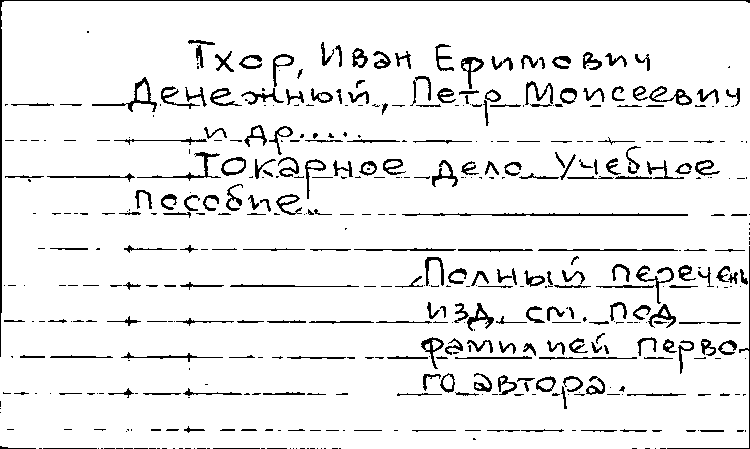 Тхор, Иван Ефимович
Денежный, Петр Моисеевич
и др.....
Токарное дело. Учебное
пособие..
Полный перечень
изд. см. под
фамилией перво-
го автора.